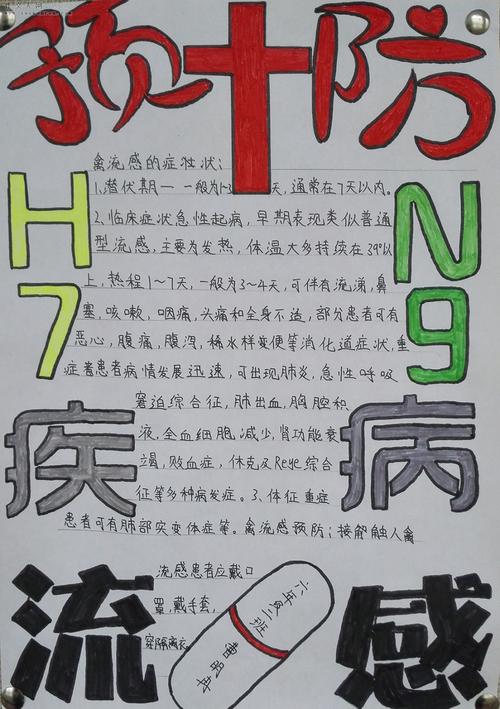 预防
H7
N9
疾病
流感
禽流感的症状:
1.潜伏期一 一般为1-3天,通常在7天以内。
2.临床症状急性起病,早期表现类似普通
型流感,主要为发热,体温大多持续在39℃以
上,热程1~7天,一般为3~4天,可伴有流涕,鼻
塞,咳嗽,咽痛,头痛和全身不适,部分患者可有
恶心,腹痛,腹泻,稀水样变便等消化道症状,重
症患者病情发展迅速,可出现肺炎,急性呼吸
窘迫综合征,肺出血,胸腔积
液,全血细胞减少,肾功能衰
竭,败血症,休克及Reye综合
征等多种病发症。3、体征重症
患者可有肺部实变体症等。禽流感预防;接触人禽
流感患者应戴口
罩,戴手套,
穿隔离衣
六年级二班